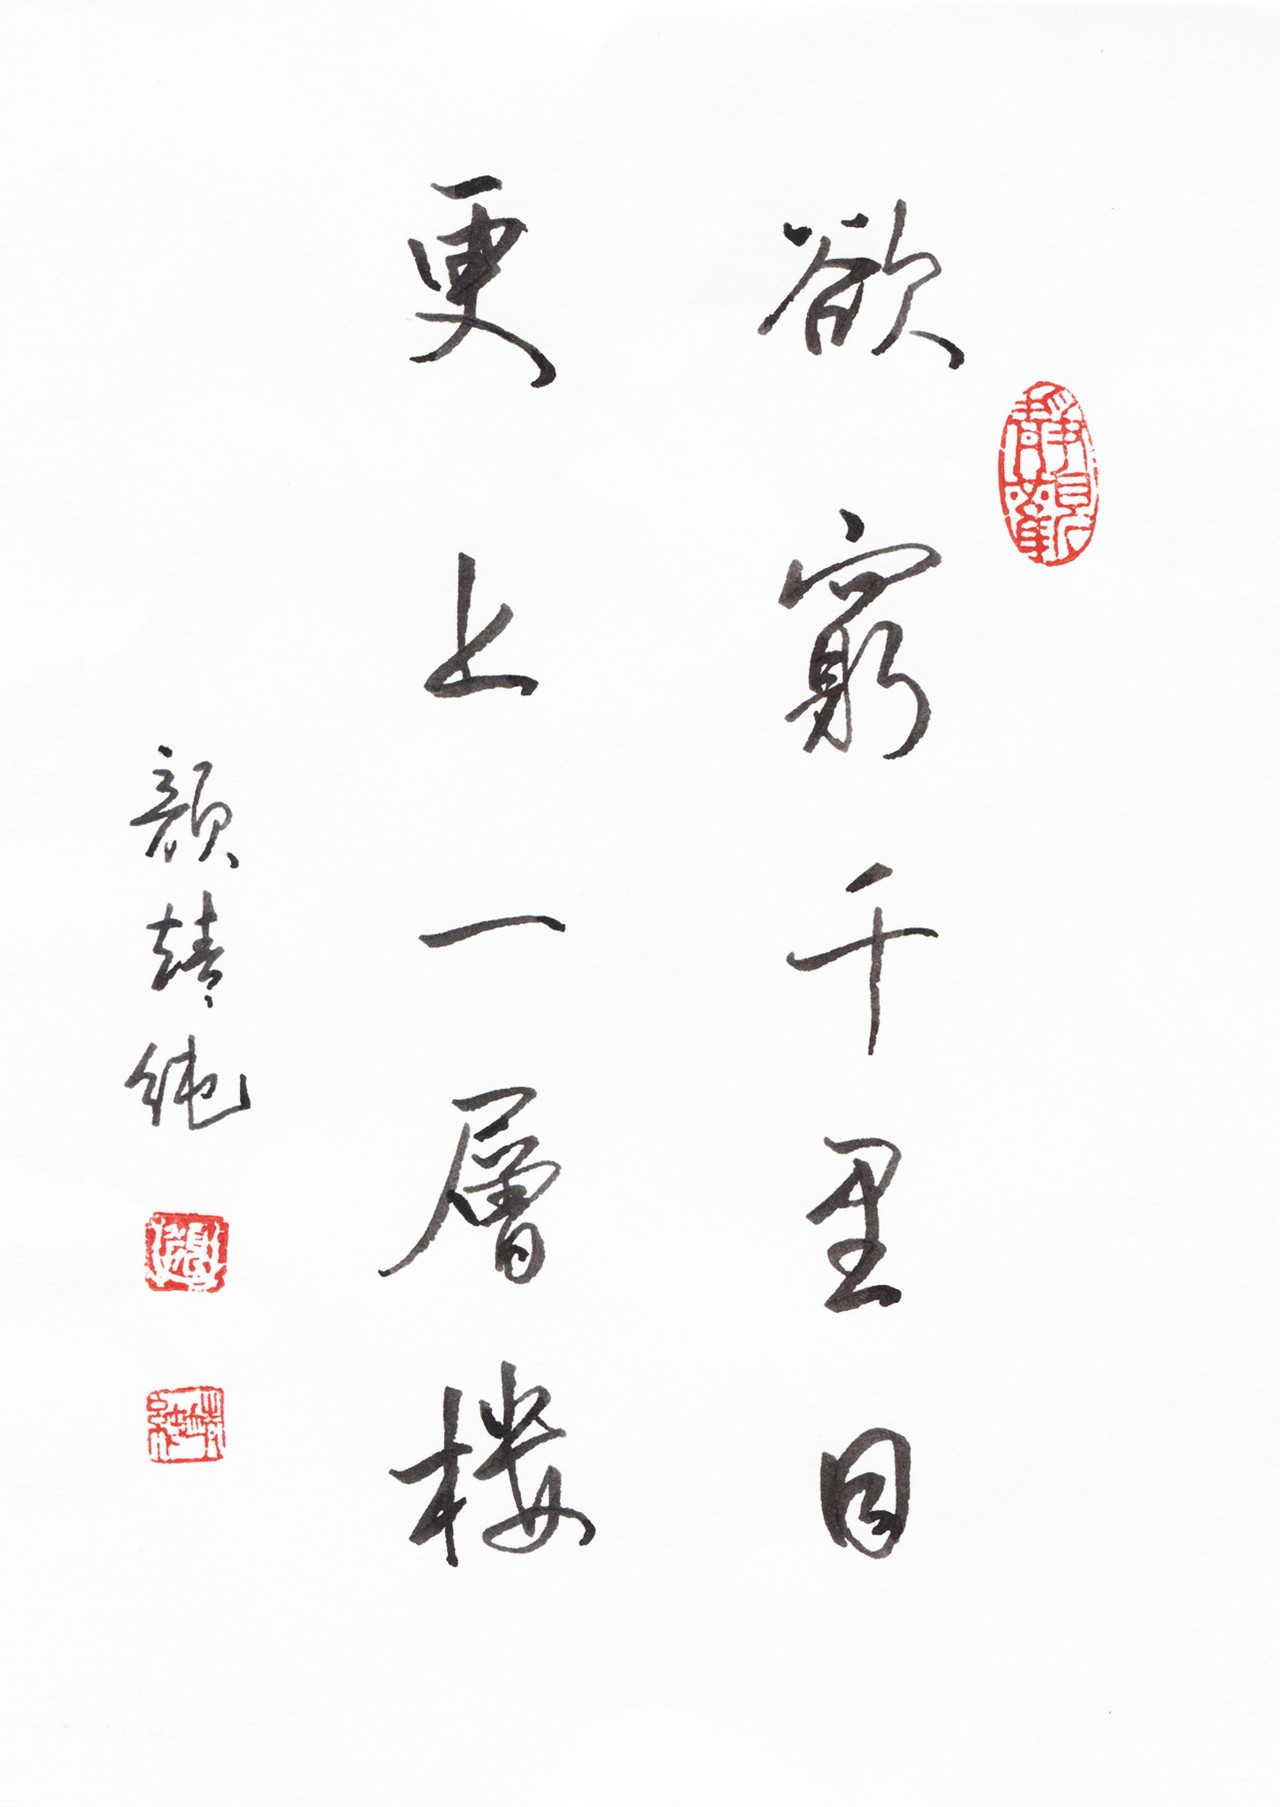 欲窮千里目
更上一層楼
顏靖純
靜觀